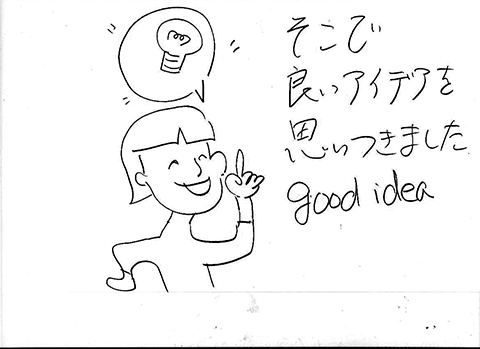 そこで
良いアイデアを
思いつきました
good idea